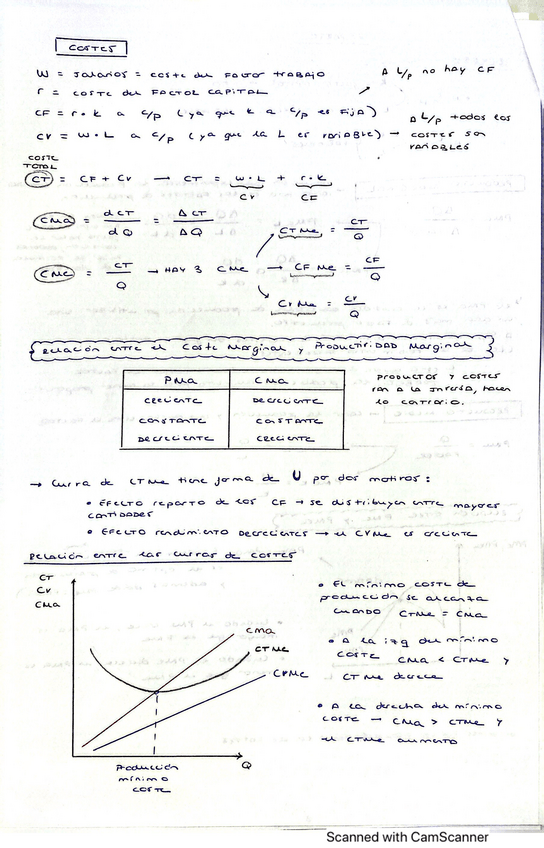 COSTES
W = SALARIOS = COSTE DEL FACTOR TRABAJO
A L/p no hay CF
r = COSTE DEL FACTOR CAPITAL
CF = r·K A C/p (ya que K A C/p es FIJA)
CV = W·L A C/p (ya que la L es VARIABLE) →
A L/p todos los
costes son
VARIABLES
COSTE
TOTAL
CT = CF + CV → CT = W·L + r·K
CV CF
CMa = dCT / dQ = ΔCT / ΔQ
CTMe = CT / Q
CMe = CT / Q → HAY 3 CMe → CFMe = CF / Q
CVMe = CV / Q
Relación entre el Coste Marginal y Productividad Marginal
PMa CMa
CRECIENTE DECRECIENTE
CONSTANTE CONSTANTE
DECRECIENTE CRECIENTE
Productos y costes
van a la inversa, hacen
lo contrario.
→ Curva de CTMe tiene forma de U por dos motivos:
• EFECTO reparto de los CF → se distribuyen entre mayores
cantidades
• EFECTO rendimiento decrecientes → el CVMe es creciente
Relación entre las curvas de costes
CT
CV
CMa
CMa
CTMe
CVMe
Q
Producción
mínimo
coste
• El mínimo coste de
producción se alcanza
cuando CTMe = CMa
• A la izq del mínimo
coste CMa < CTMe y
CTMe decrece
• A la derecha del mínimo
coste → CMa > CTMe y
el CTMe aumenta
Scanned with CamScanner